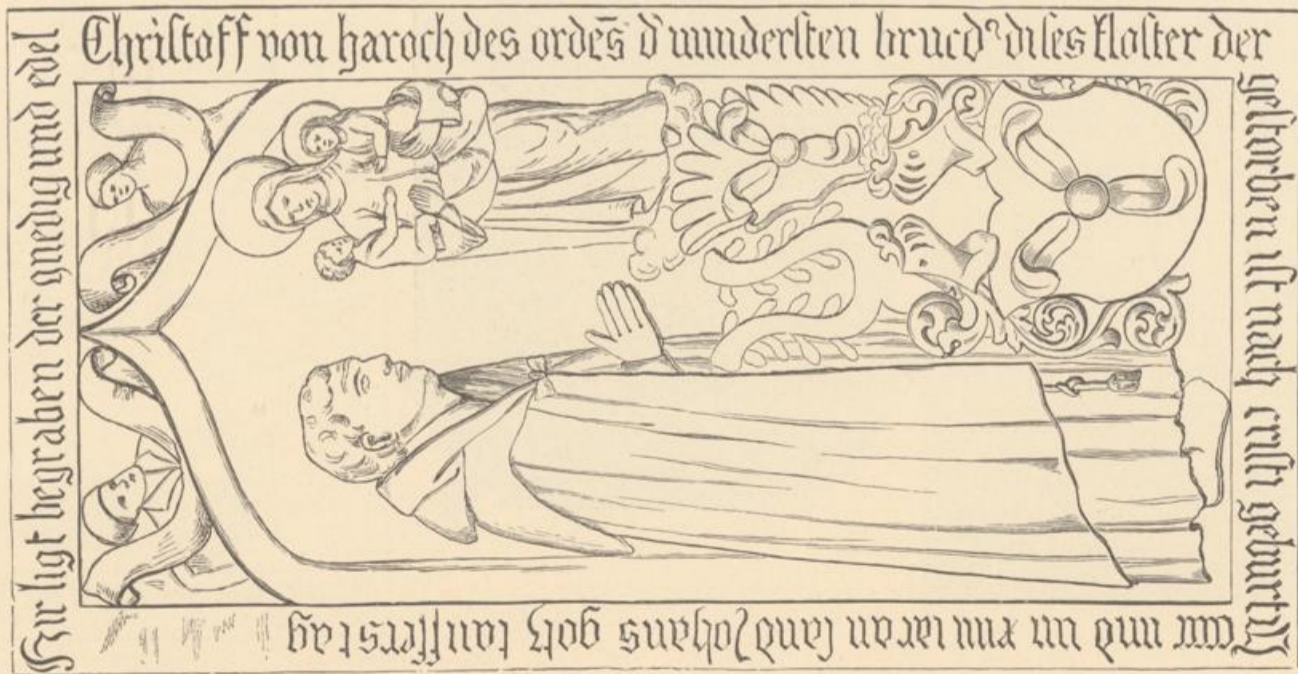 Hir ligt begraben der gnedig und edel
Christoff von haroch des ordēs d' mindersten brued' dises kloster der
gestorben ist nach cristi geburt M
und im iar an sand Johans gotz tauffers tag